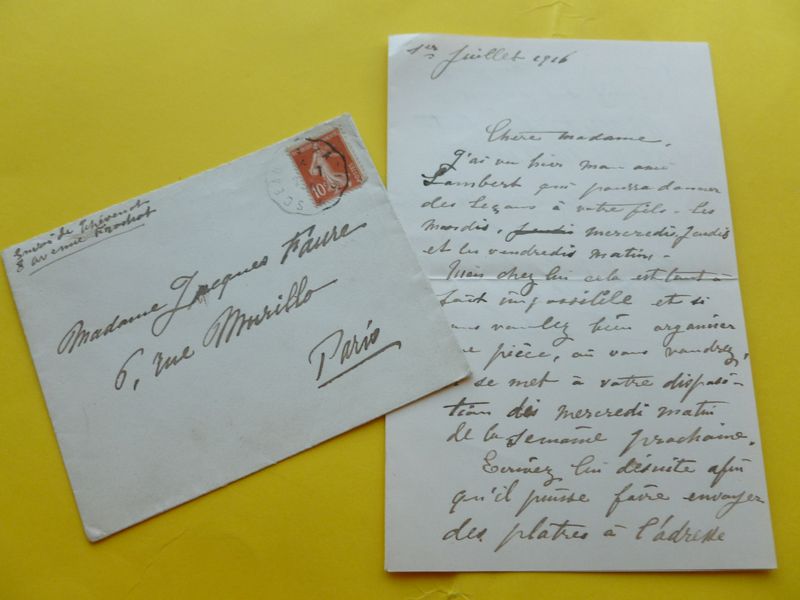 Envoi de Thévenot
8 avenue Frochot
10
Madame Jacques Faure
6, rue Murillo
Paris
1er Juillet 1916
Chere Madame,
J'ai vu hier mon ami
Lambert qui pourra donner
des leçons à votre fils - les
mardis, jeudi mercredis, jeudis
et les vendredis matin -
Mais chez lui cela est tout à
fait impossible et si
vous voulez bien organiser
une pièce, où vous voudrez,
il se met à votre disposi-
tion dès mercredi matin
de la semaine prochaine.
Ecrivez lui désuite afin
qu'il puisse faire envoyer
des platres à l'adresse